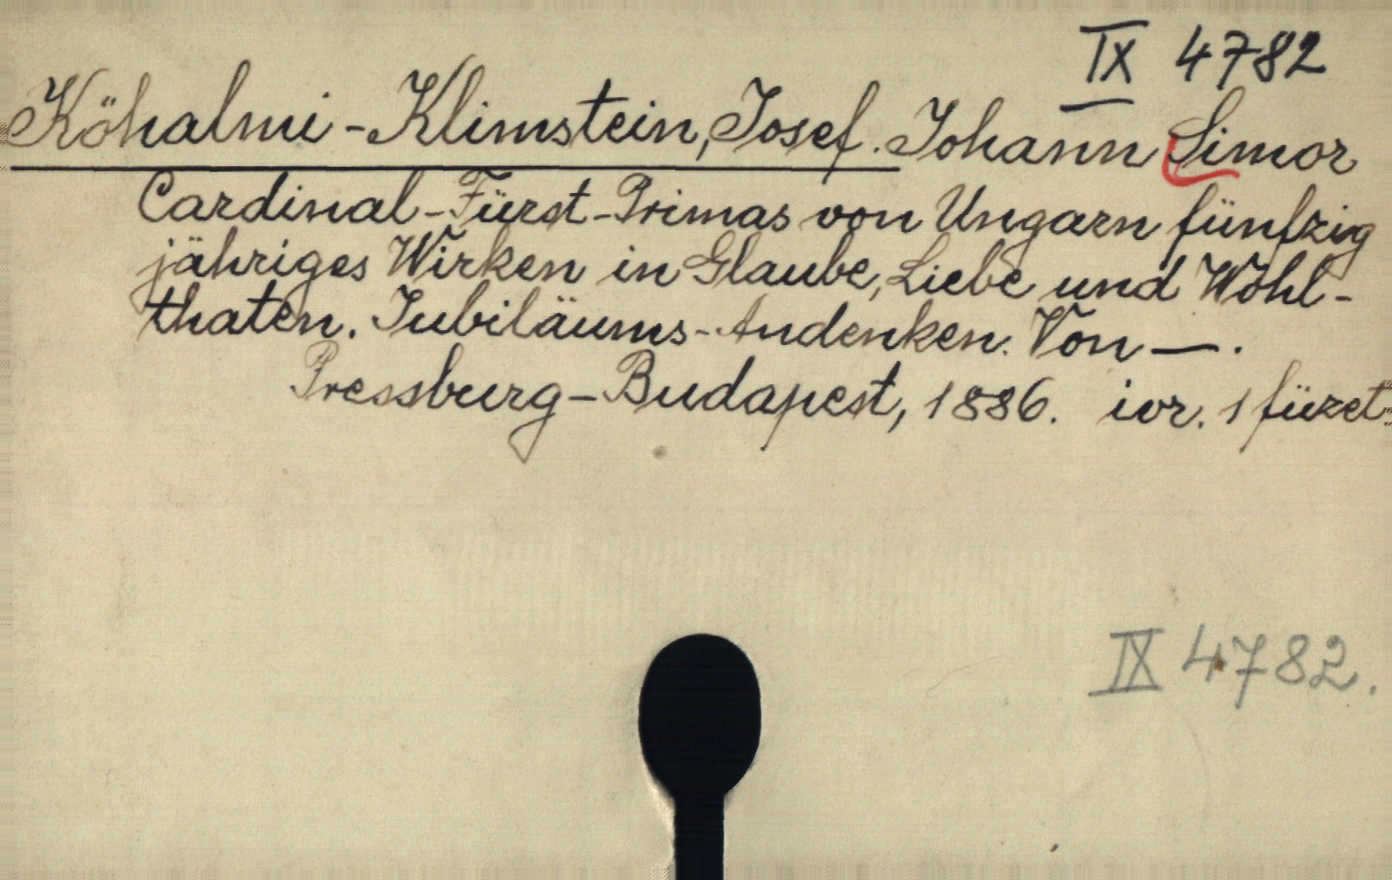 IX 4782
Köhalmi-Klimstein, Josef. Johann Simor
Cardinal-Fürst-Primas von Ungarn fünfzig
jähriges Wirken in Glaube, Liebe und Wohl-
thaten. Jubiläums-Andenken. Von —.
Pressburg-Budapest, 1886. ivr. 1 füzet.
IX 4782.